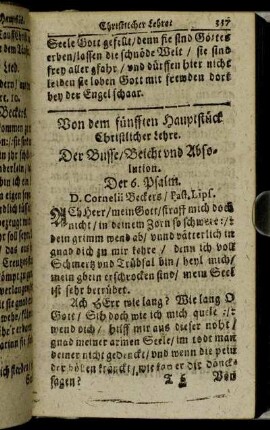 Christlicher Lehre. 317
Seele Gott gefellt/denn sie sind Gottes
erben/lassen die schnöde Welt / sie sind
frey aller gfahr/ vnd dürffen hier nicht
leiden sie loben Gott mit frewden dort
bey der Engel schaar.
Von dem fünfften Hauptstück
Christlicher Lehre.
Der Busse/Beicht vnd Abso-
lution.
Der 6. Psalm.
D. Cornelii Beckers / Past. Lips.
ACh Herr/mein Gott/straff mich doch
nicht / in deinem Zorn so schwere :/:
dein grimm wend ab/ vnnd väterlich in
gnad dich zu mir kehre / denn ich voll
Schmertz vnd Trübsal bin/ heyl mich/
mein gbein erschrocken sind/ mein Seel
ist sehr betrübet.
Ach HErr wie lang? Wie lang O
Gott / Sih doch wie ich mich quele :/:
wend dich / hilff mir aus dieser noht /
gnad meiner armen Seele/ im todt man
deiner nicht gedenckt/ vnd wenn die pein
der höllen krenckt/ wie kan er dir danck-
sagen?
Von